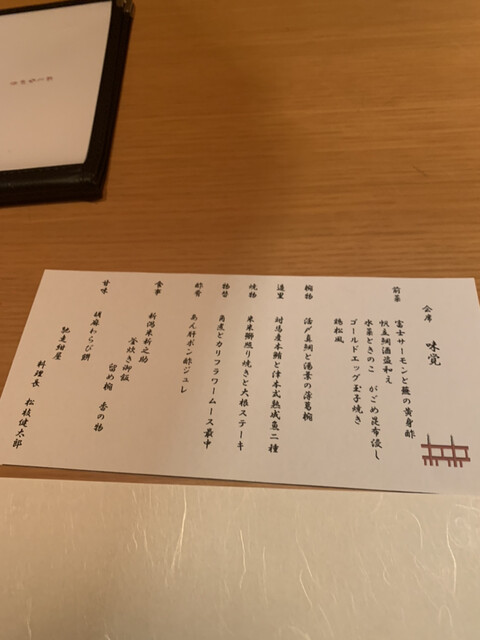 会席 味覚
前菜
富士サーモンと蕪の黄身酢
帆立鯛酒盗和え
水菜ときのこ がごめ昆布浸し
ゴールドエッグ玉子焼き
鶏松風
椀物
活〆真鯛と湯葉の薄葛椀
造里
対馬産本鮪と津本式熟成魚二種
焼物
東米鰤照り焼きと大根ステーキ
物替
角煮とカリフラワームース最中
酢肴
あん肝ポン酢ジュレ
食事
新潟米新之助
釜炊き御飯
留め椀 香の物
甘味
胡麻わらび餅
馳走紺屋
料理長 松枝健太郎